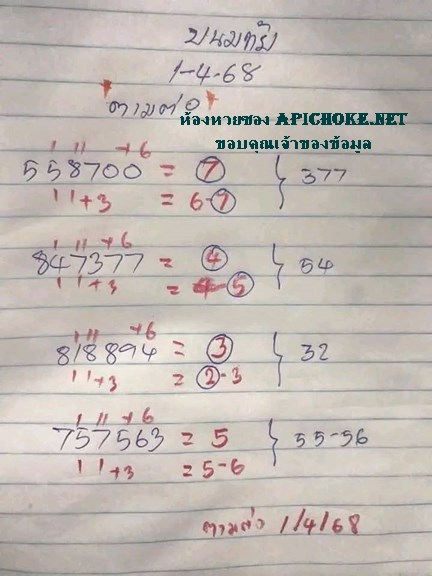 พนมทัย
1-4-68
* ตามต่อ *
ห้องหวยซอง APICHOKE.NET
ขอบคุณเจ้าของข้อมูล
1 11 +6
558700 = 7 } 377
11+3 = 6-7
1 11 +6
847377 = 4 } 54
11+3 = 5
1 11 +6
818894 = 3 } 32
11+3 = 2-3
1 11 +6
757563 = 5 } 55-56
11+3 = 5-6
ตามต่อ 1/4/68